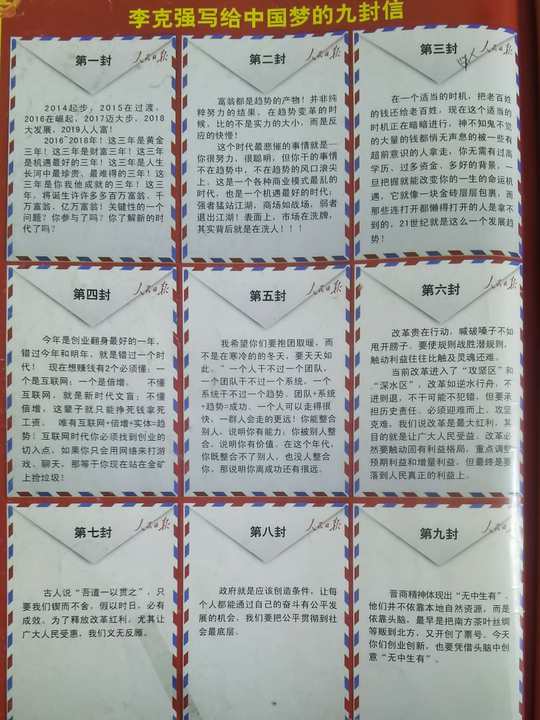 李克强写给中国梦的九封信
第一封
人民日报
2014起步，2015在过渡，
2016在崛起，2017迈大步，2018
大发展，2019人人富！
2016~2018年！这三年是黄金
三年！是财富三年！这三年
是机遇最好的三年！是人生
长河中最珍贵，最难得的三年！这
三年是你我他成就的三年！这三
年，将诞生许许多多百万富翁、千
万富翁、亿万富翁！关键性的一个
问题？你参与了吗？你了解新的时
代了吗？
第二封
人民日报
富翁都是趋势的产物！并非纯
粹努力的结果，在趋势变革的时
候，比的不是实力的大小，而是反
应的快慢！
这个时代最悲催的事情就是——
你很努力，很聪明，但你干的事情
不在趋势中，不在趋势的风口浪尖
上，这是一个各种商业模式最乱的
时代，也是一个机遇最好的时代，
强者猛站江湖，商场如战场，弱者
退出江湖！表面上，市场在洗牌，
其实背后就是在洗人！！！
第三封
人民日报
在一个适当的时机，把老百姓
的钱还给老百姓，现在这个适当的
时机正在暗暗进行，神不知鬼不觉
的大量的钱都悄无声息的被一些有
超前意识的人拿走，你无需有过高
学历、过多资金、多好的背景，一
旦把握就能改变你的一生的命运机
遇，它就像一块金砖层层包裹，而
那些连打开都懒得打开的人是拿不
到的，21世纪就是这么一个发展趋
势！
第四封
人民日报
今年是创业翻身最好的一年，
错过今年和明年，就是错过一个时
代！ 现在想赚钱有2个必须懂：一
个是互联网；一个是倍增。 不懂
互联网，就是新时代文盲；不懂
倍增，这辈子就只能挣死钱拿死
工资。 唯有互联网+倍增+实体=趋
势；互联网时代你必须找到创业的
切入点，如果你只会用网络来打游
戏、聊天，那等于你现在站在金矿
上捡垃圾！
第五封
人民日报
我希望你们要抱团取暖，而
不是在寒冷的的冬天，要天天如
此。“一个人干不过一个团队，
一个团队干不过一个系统，一个
系统干不过一个趋势。团队+系统
+趋势=成功，一个人可以走得很
快，一群人会走的更远！你能整合
别人，说明你有能力；你被别人整
合，说明你有价值。在这个年代，
你既整合不了别人，也没人整合
你，那说明你离成功还有很远。
第六封
人民日报
改革贵在行动，喊破嗓子不如
甩开膀子。要使规则战胜潜规则，
触动利益往往比触及灵魂还难。
当前改革进入了“攻坚区”和
“深水区”，改革如逆水行舟，不
进则退，不干可能不犯错，但要承
担历史责任。必须迎难而上，攻坚
克难。我们说改革是最大红利，其
目的就是让广大人民受益。改革必
然要触动固有利益格局，重点调整
预期利益和增量利益，但最终是要
落到人民真正的利益上。
第七封
人民日报
古人说“吾道一以贯之”，只
要我们锲而不舍，假以时日，必有
成效。为了释放改革红利，尤其让
广大人民受惠，我们义无反顾。
第八封
人民日报
政府就是应该创造条件，让每
个人都能通过自己的奋斗有公平发
展的机会。我们要把公平贯彻到社
会最底层。
第九封
人民日报
晋商精神体现出“无中生有”。
他们并不依靠本地自然资源，而是
依靠头脑，最早是把南方茶叶丝绸
等贩到北方，又开创了票号。今天
你们创业创新，也要凭借头脑中创
意“无中生有”。